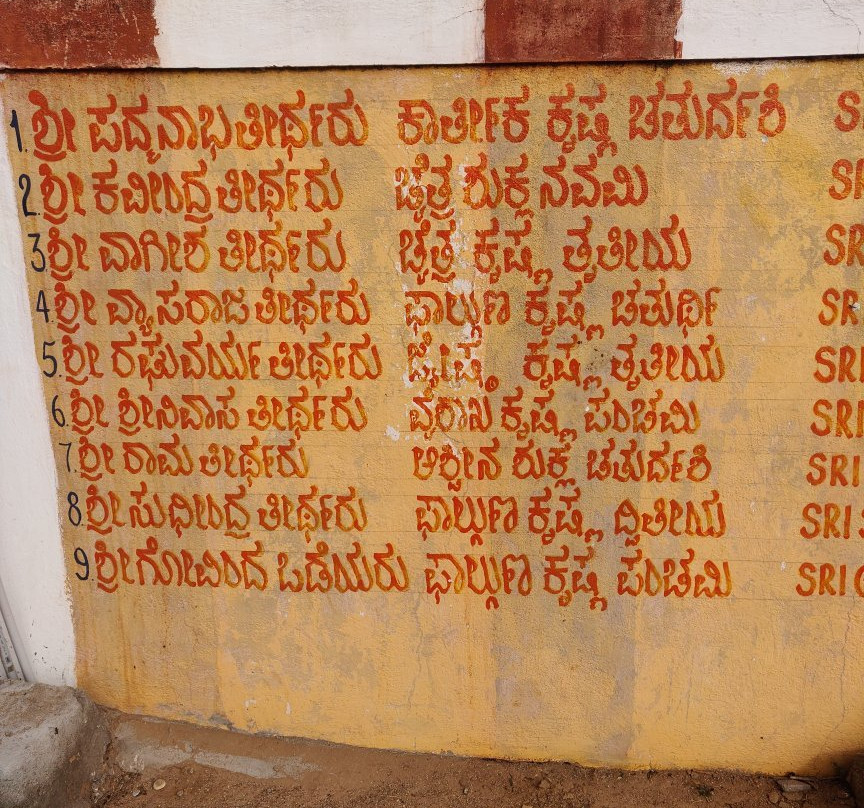 1. ಶ್ರೀ ಪದ್ಮನಾಭ ತೀರ್ಥರು ಕಾರ್ತೀಕ ಕೃಷ್ಣ ಚತುರ್ದಶಿ S
2. ಶ್ರೀ ಕವೀಂದ್ರ ತೀರ್ಥರು ಚೈತ್ರ ಶುಕ್ಲ ನವಮಿ SI
3. ಶ್ರೀ ವಾಗೀಶ ತೀರ್ಥರು ಚೈತ್ರ ಕೃಷ್ಣ ತೃತೀಯ SR
4. ಶ್ರೀ ವ್ಯಾಸರಾಜ ತೀರ್ಥರು ಫಾಲ್ಗುಣ ಕೃಷ್ಣ ಚತುರ್ಥಿ SR
5. ಶ್ರೀ ರಘುವರ್ಯ ತೀರ್ಥರು ಜ್ಯೇಷ್ಠ ಕೃಷ್ಣ ತೃತೀಯ SRI
6. ಶ್ರೀ ಶ್ರೀನಿವಾಸ ತೀರ್ಥರು ವೈಶಾಖ ಕೃಷ್ಣ ಪಂಚಮಿ SRI
7. ಶ್ರೀ ರಾಮ ತೀರ್ಥರು ಆಶ್ವೀನ ಶುಕ್ಲ ಚತುರ್ದಶಿ SRI
8. ಶ್ರೀ ಸುಧೀಂದ್ರ ತೀರ್ಥರು ಫಾಲ್ಗುಣ ಕೃಷ್ಣ ದ್ವಿತೀಯ SRI S
9. ಶ್ರೀ ಗೋವಿಂದ ಒಡೆಯರು ಫಾಲ್ಗುಣ ಕೃಷ್ಣ ಪಂಚಮಿ SRI G